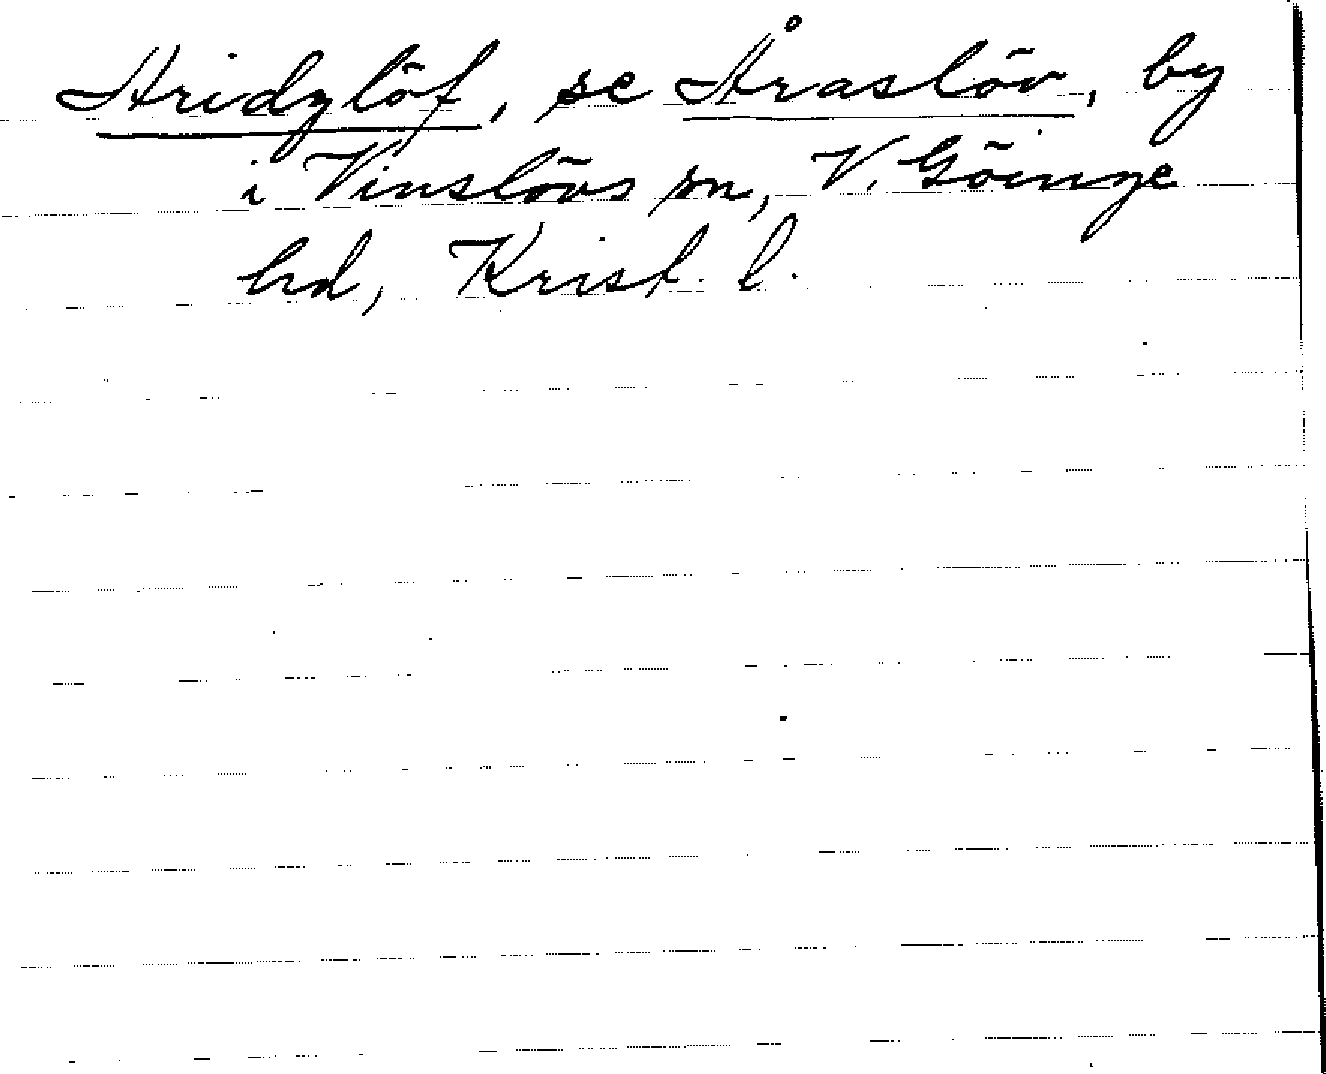 Aridzlöf, se Åraslöv, by
i Vinslövs sn, V. Göinge
hd, Krist. l.